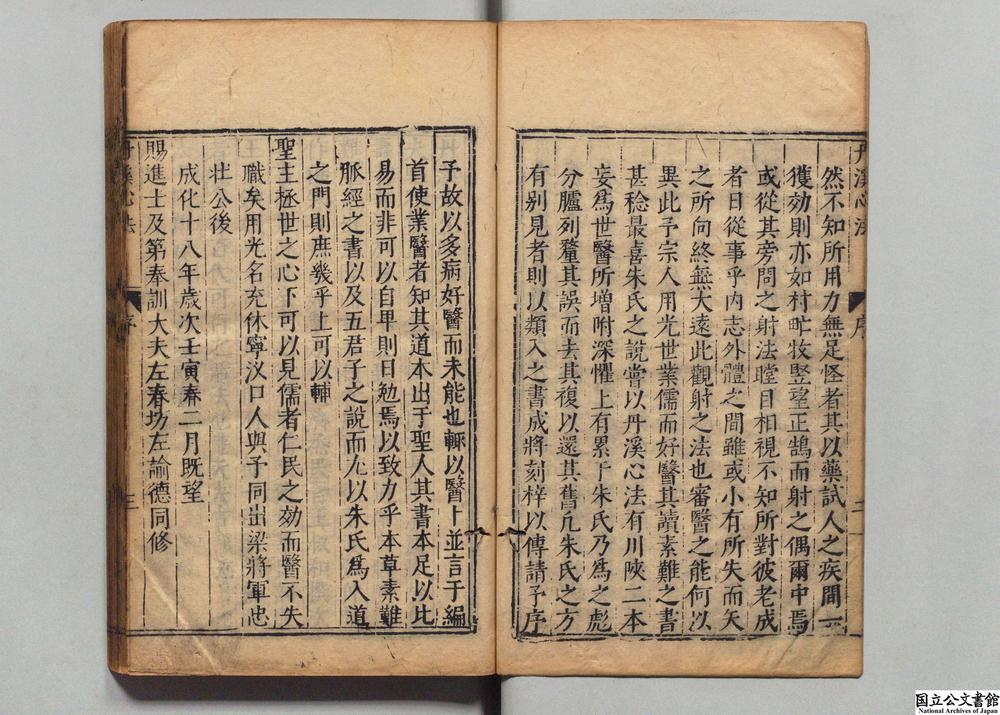 丹溪心法
序
二
然不知所用力無足怪者其以藥試人之疾間一
獲効則亦如村甿牧豎望正鵠而射之偶爾中焉
或從其旁問之射法瞠目相視不知所對彼老成
者日從事乎内志外體之間雖或小有所失而矢
之所向終無大遠此觀射之法也審醫之能何以
異此予宗人用光世業儒而好醫其讀素難之書
甚稔最喜朱氏之說嘗以丹溪心法有川陝二本
妄爲世醫所增附深懼上有累于朱氏乃爲之彪
分臚列釐其誤而去其復以還其舊凢朱氏之方
有别見者則以類入之書成將刻梓以傳請予序
予故以多病好醫而未能也輒以醫卜並言于編
首使業醫者知其道本出于聖人其書本足以比
易而非可以自卑則日勉焉以致力乎本草素難
脉經之書以及五君子之說而尤以朱氏爲入道
之門則庶幾乎上可以輔
聖主拯世之心下可以見儒者仁民之効而醫不失
職矣用光名充休寧汊口人與予同出梁將軍忠
壮公後
成化十八年歲次壬寅春二月既望
賜進士及第奉訓大夫左春坊左諭德同修
丹溪心法
序
三
国立公文書館
National Archives of Japan